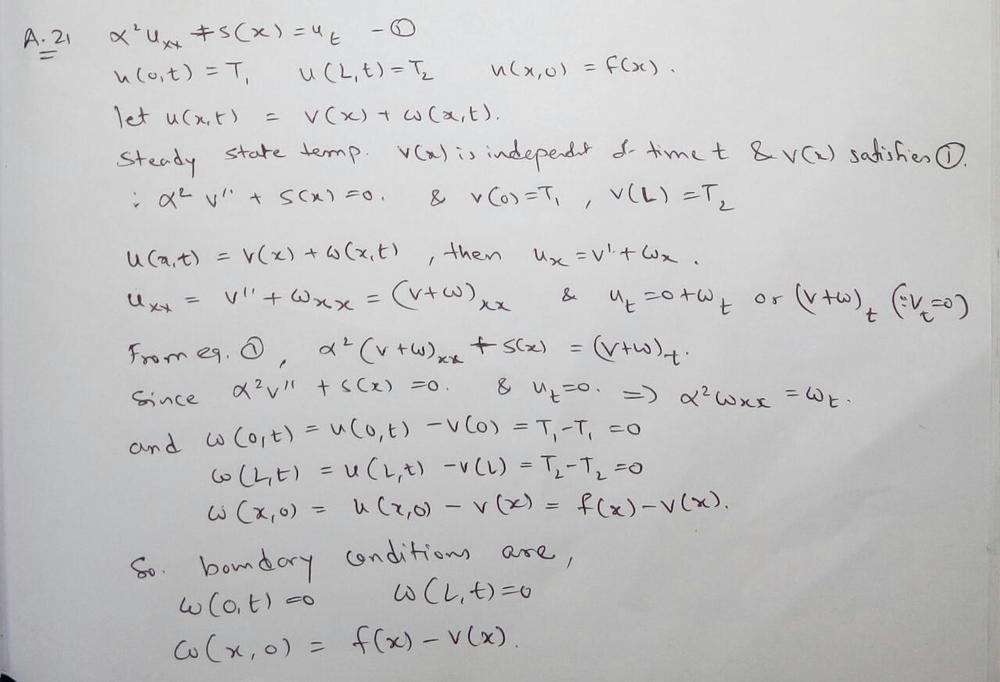 A.21 α² u_xx + s(x) = u_t - ①
u(0,t) = T₁ u(L,t) = T₂ u(x,0) = f(x).
let u(x,t) = v(x) + ω(x,t).
Steady state temp. v(x) is independent of time t & v(x) satisfies ①.
∴ α² v'' + s(x) = 0. & v(0) = T₁, v(L) = T₂
u(x,t) = v(x) + ω(x,t), then u_x = v' + ω_x.
u_xx = v'' + ω_xx = (v+ω)_xx & u_t = 0 + ω_t or (v+ω)_t (∵ v_t = 0)
From eq. ①, α² (v+ω)_xx + s(x) = (v+ω)_t.
Since α² v'' + s(x) = 0. & u_t = 0. ⇒ α² ω_xx = ω_t.
and ω(0,t) = u(0,t) - v(0) = T₁ - T₁ = 0
ω(L,t) = u(L,t) - v(L) = T₂ - T₂ = 0
ω(x,0) = u(x,0) - v(x) = f(x) - v(x).
So. boundary conditions are,
ω(0,t) = 0 ω(L,t) = 0
ω(x,0) = f(x) - v(x).